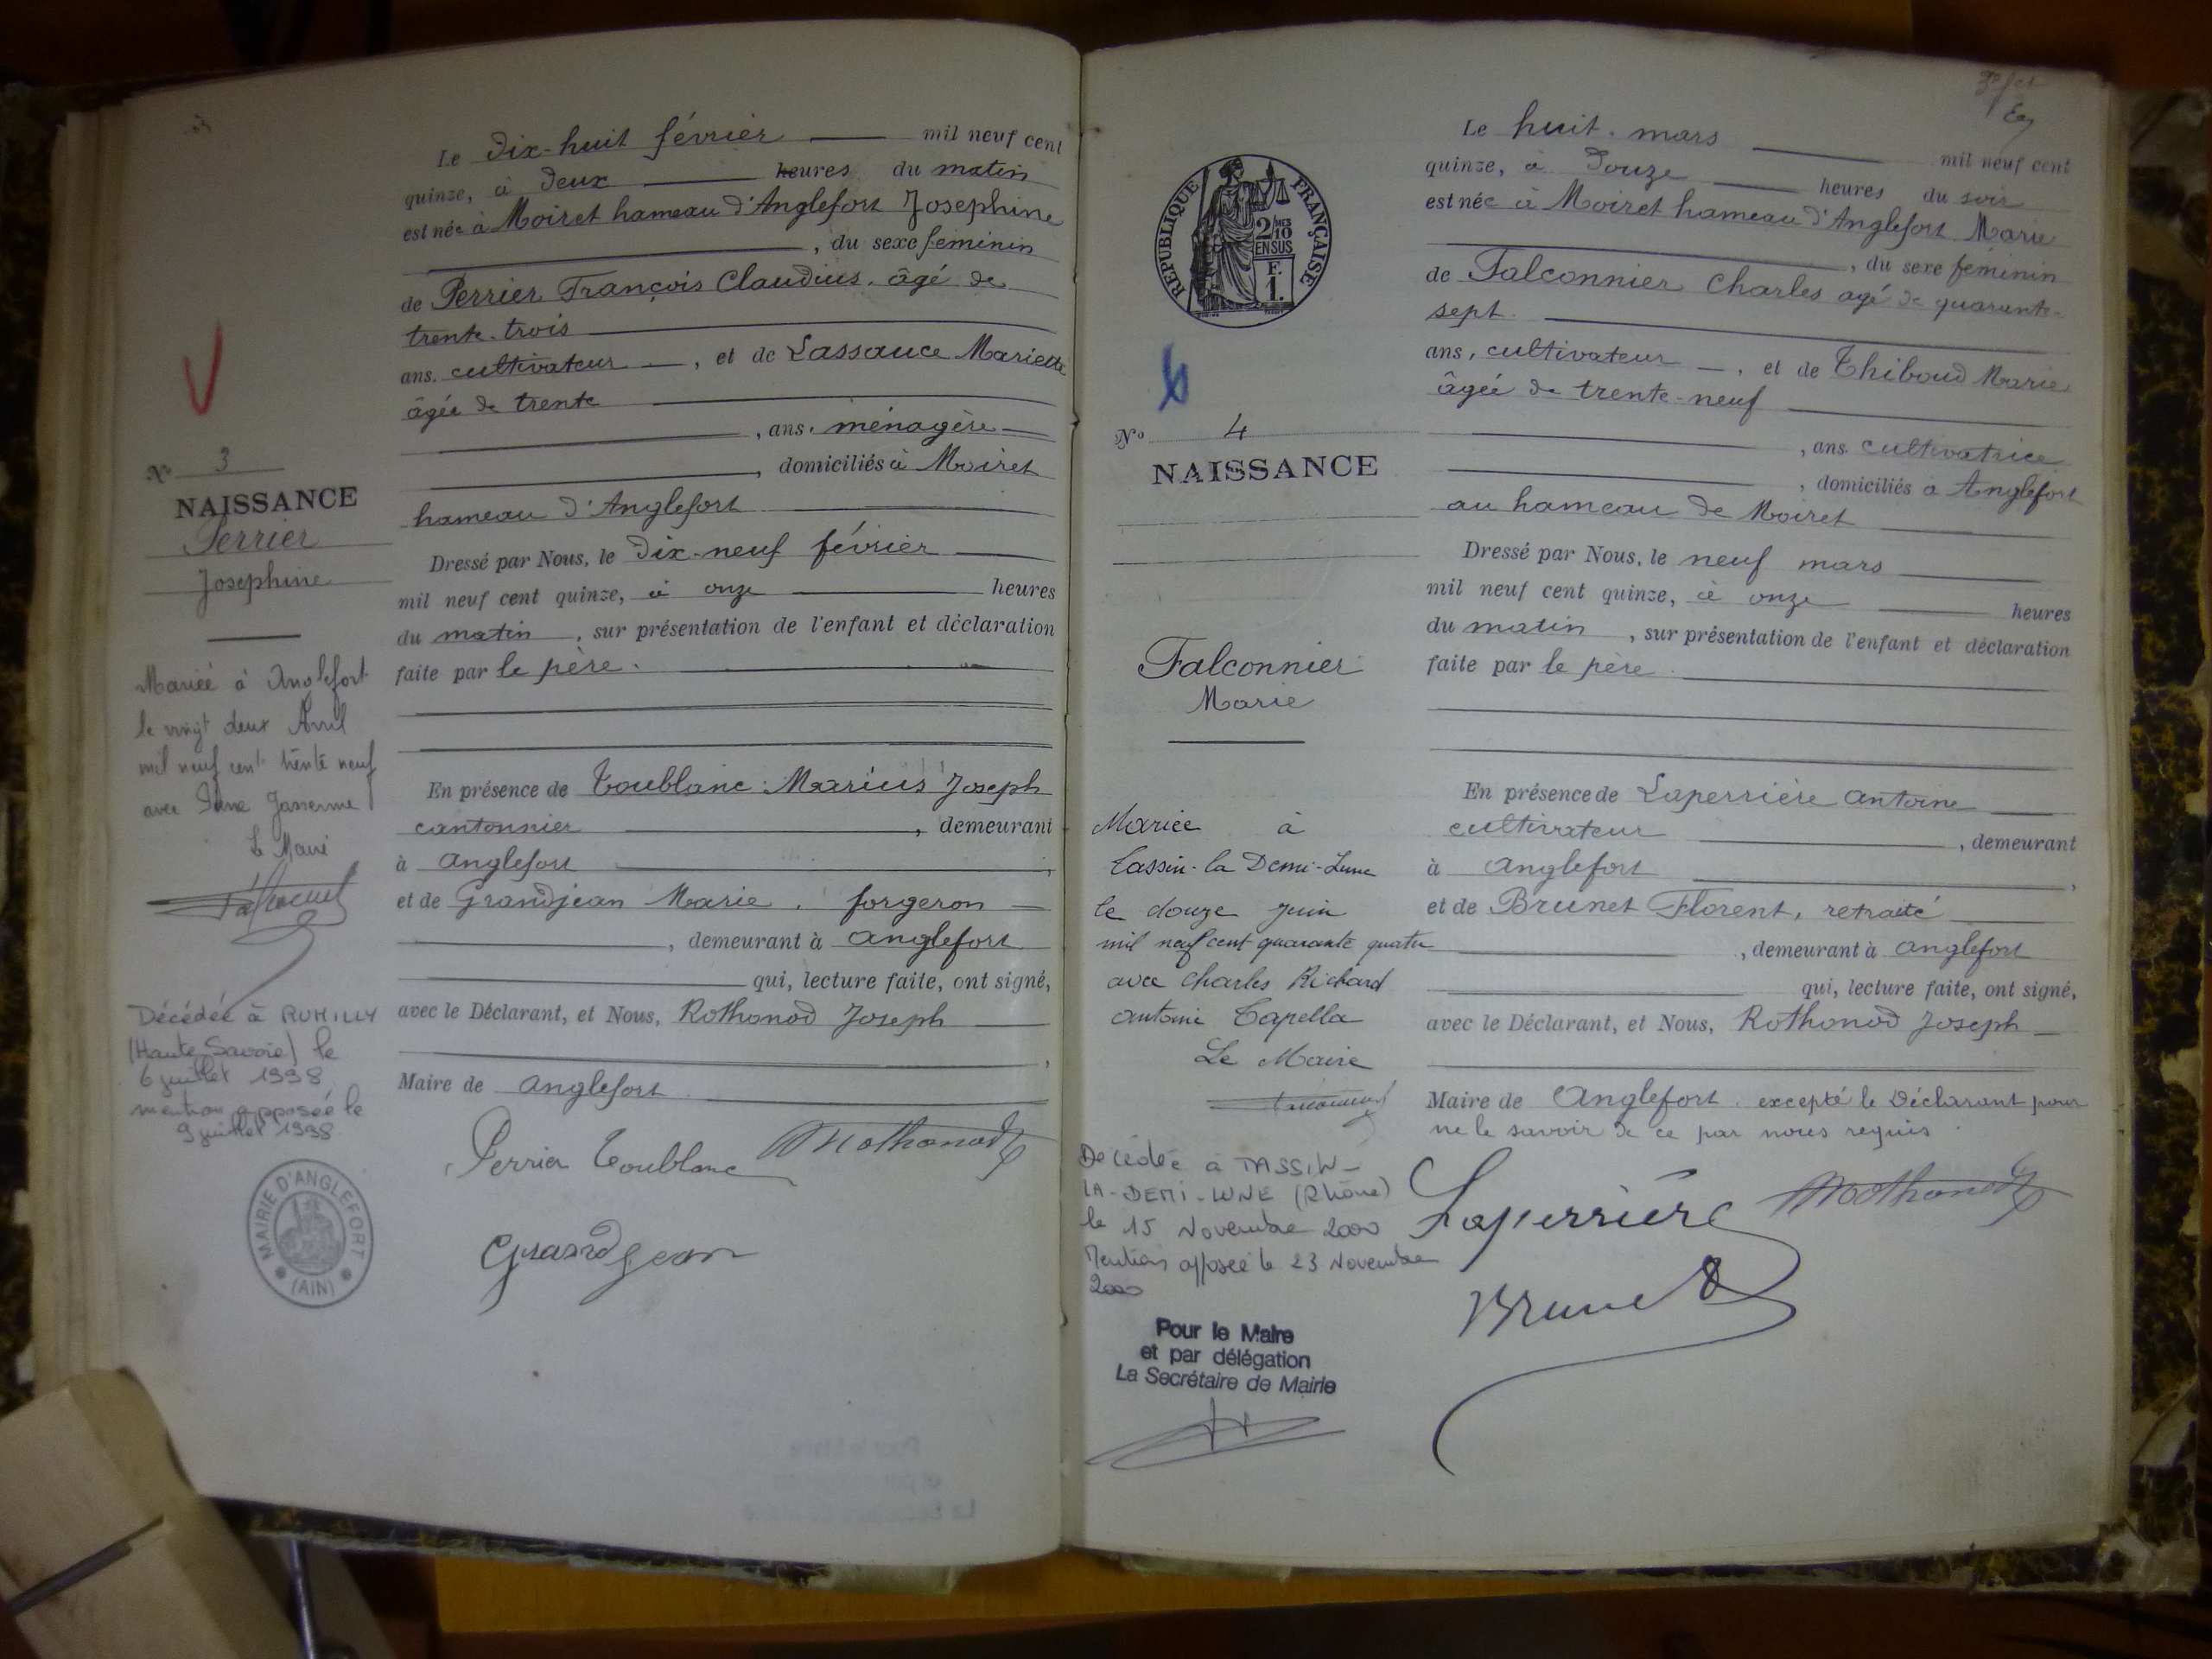 Le dix-huit février mil neuf cent
quinze, à deux heures du matin
est née à Moiret hameau d'Anglefort Josephine
, du sexe féminin
de Perrier François Claudius. âgé de
trente-trois
ans. cultivateur , et de Lassauce Mariette
âgée de trente
, ans. ménagère
, domiciliés à Moiret
hameau d'Anglefort
Dressé par Nous, le dix-neuf février
mil neuf cent quinze, à onze heures
du matin , sur présentation de l'enfant et déclaration
faite par le père.
En présence de Toublanc Marius Joseph
cantonnier , demeurant
à Anglefort ,
et de Grandjean Marie, forgeron
, demeurant à Anglefort
qui, lecture faite, ont signé,
avec le Déclarant, et Nous, Rothonod Joseph
,
Maire de Anglefort
Perrier Toublanc Rothonod
Grandjean
No 3
NAISSANCE
Perrier
Josephine
Mariée à Anglefort
le vingt deux Avril
mil neuf cent trente neuf
avec
Le Maire
Décédée à RUMILLY
(Haute Savoie) le
6 juillet 1998
mention apposée le
9 juillet 1998
MAIRIE D'ANGLEFORT
(AIN)
RÉPUBLIQUE FRANÇAISE
2/10 MES
EN SUS
F.
1.
No 4
NAISSANCE
Falconnier
Marie
Mariée à
Tassin-la Demi-Lune
le douze Juin
mil neuf cent quarante quatre
avec Charles Richard
Antoine Tapella
Le Maire
Décédée à TASSIN-
LA-DEMI-LUNE (Rhône)
le 15 Novembre 2000
Mention apposée le 23 Novembre
2000
Pour le Maire
et par délégation
La Secrétaire de Mairie
Le huit mars mil neuf cent
quinze, à douze heures du soir
est née à Moiret hameau d'Anglefort Marie
, du sexe féminin
de Falconnier Charles agé de quarante-
sept
ans, cultivateur , et de Thiboud Marie
âgée de trente-neuf
, ans. cultivatrice
, domiciliés à Anglefort
au hameau de Moiret
Dressé par Nous, le neuf mars
mil neuf cent quinze, à onze heures
du matin , sur présentation de l'enfant et déclaration
faite par le père.
En présence de Laperrière Antoine
cultivateur , demeurant
à Anglefort ,
et de Brunet Florent, retraité
, demeurant à Anglefort
qui, lecture faite, ont signé,
avec le Déclarant, et Nous, Rothonod Joseph
Maire de Anglefort excepté le Déclarant pour
ne le savoir de ce par nous requis.
Laperrière Rothonod
Brunet